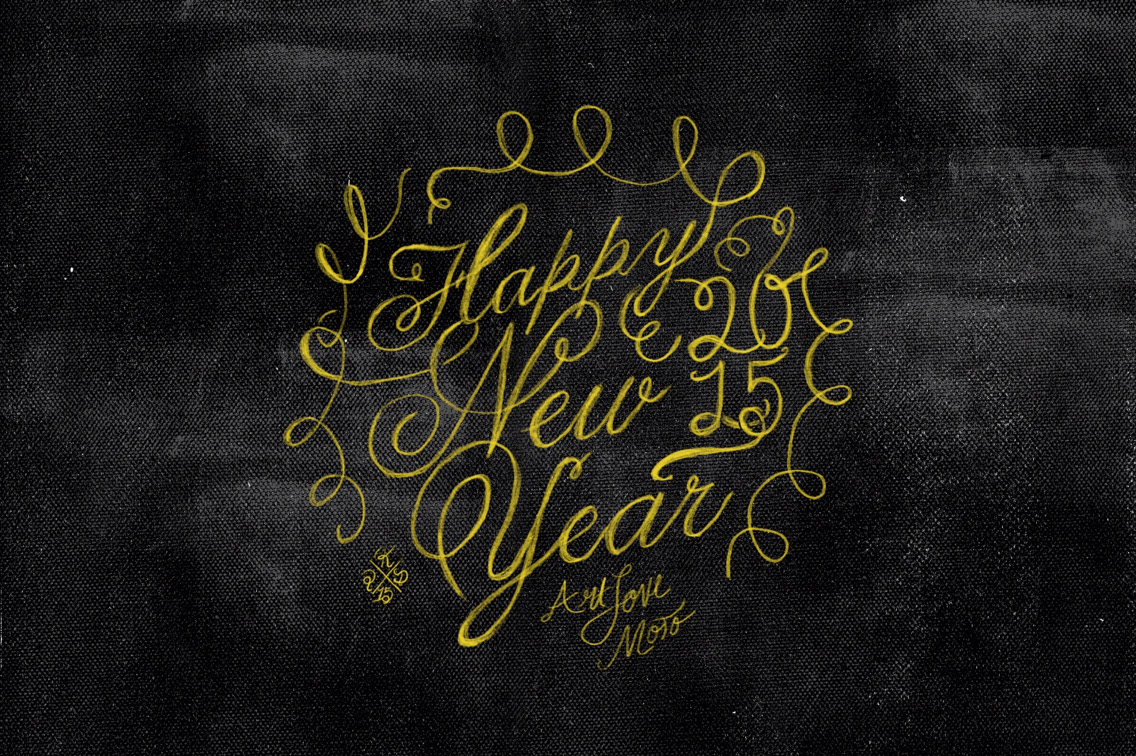 Happy
New 20
Year 15
Art Love
Moto
L D
2 15